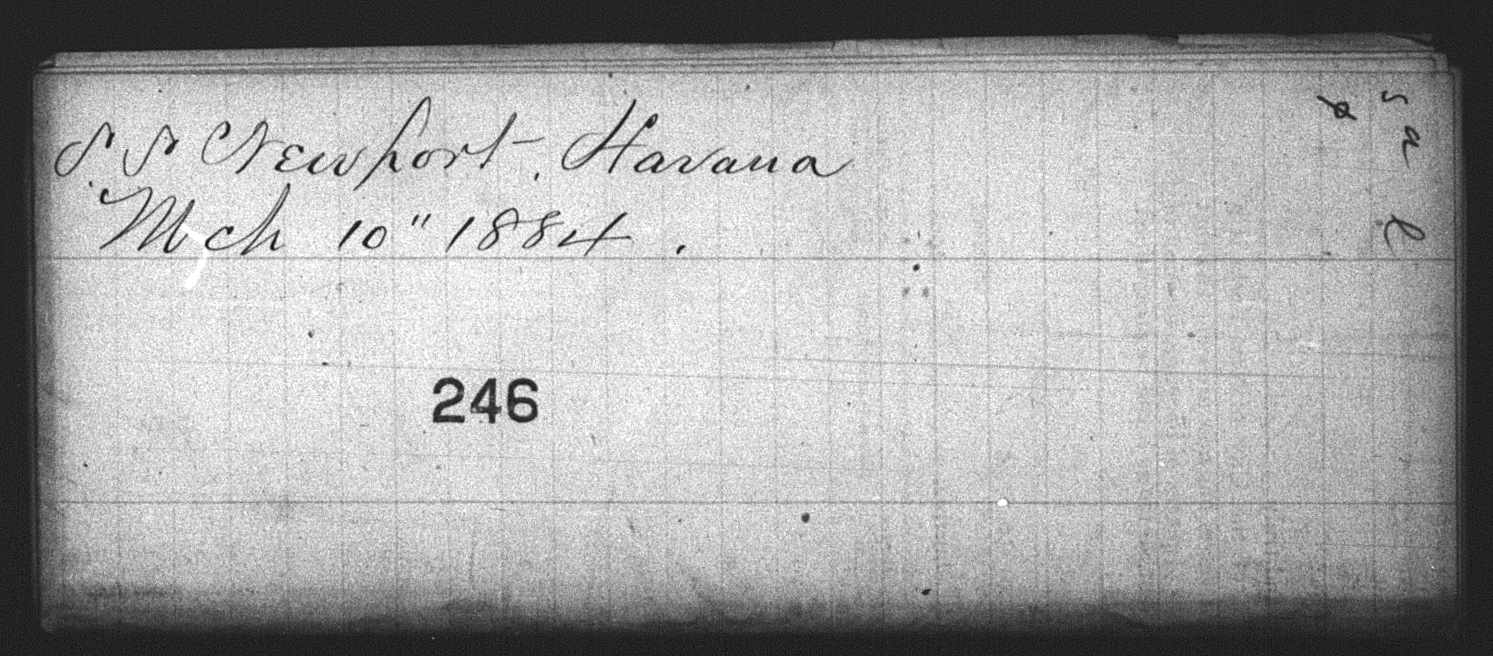 S. S. Newport, Havana
Mch 10" 1884.
246